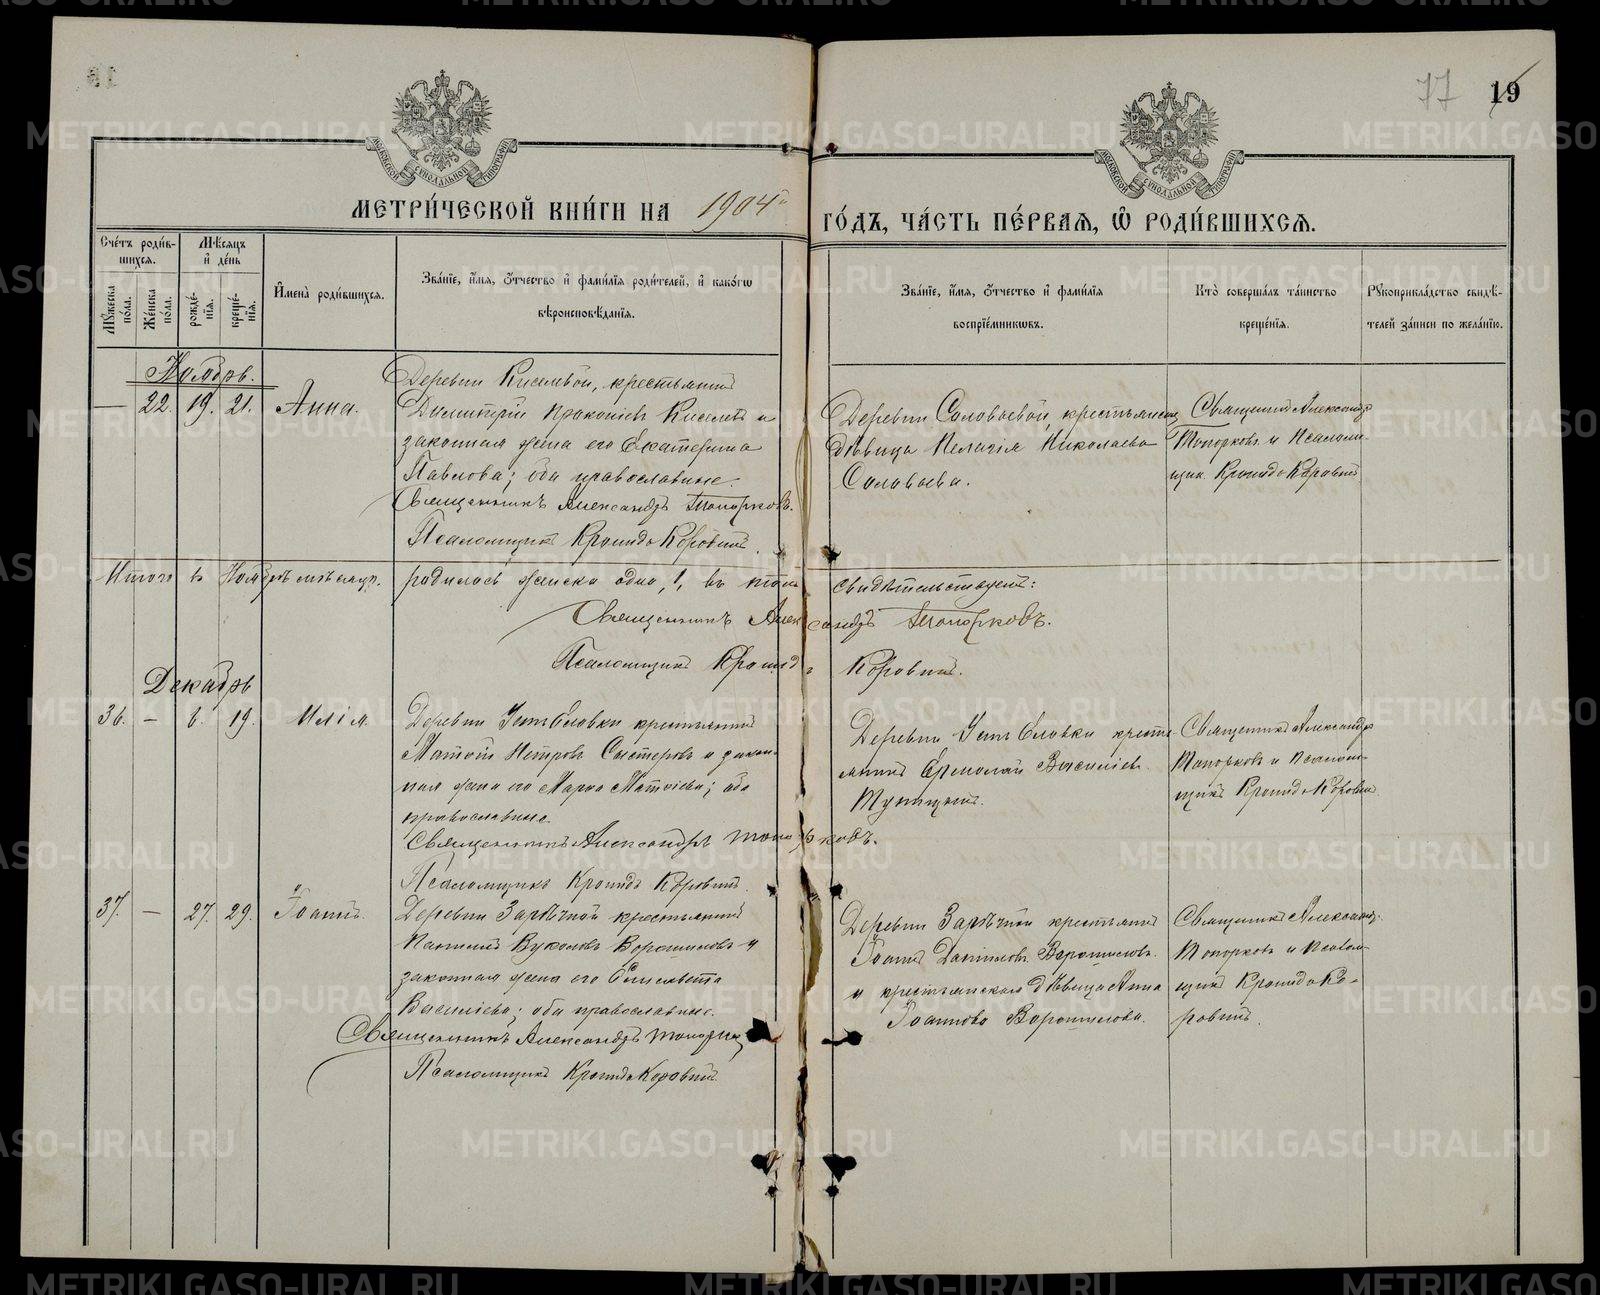 77 19
МЕТРИЧЕСКОЙ КНИГИ НА 1904й ГОДЪ, ЧАСТЬ ПЕРВАЯ, Ѡ РОДИВШИХСЯ.
Счетъ родив-
шихся.
Мꙋжеска пола.
Женска пола.
Мѣсяцъ
и день
рожде-
нія.
креще-
нія.
Имена родившихся.
Званіе, имя, отчество и фамилія родителей, и какогѡ
вѣроисповѣданія.
Званіе, имя, отчество и фамилія
воспріемникѡвъ.
Кто совершалъ таинство
крещенія.
Рꙋкоприкладство свидѣ-
телей записи по желанію.
Ноябрь.
— 22. 19. 21. Анна.
Деревни Киселевой, крестьянинъ
Димитрій Прокопіевъ Киселевъ и
законная жена его Екатерина
Павлова; оба православные.
Священникъ Александръ Топорковъ.
Псаломщикъ Кронидъ Коровинъ.
Деревни Соловьевой, крестьянская
дѣвица Пелагія Николаева
Соловьева.
Священникъ Александръ
Топорковъ и Псалом-
щикъ Кронидъ Коровинъ
Итого въ Ноябрѣ мѣсяцѣ родилось женска одна, 1, въ томъ свидѣтельствуемъ:
Священникъ Александръ Топорковъ.
Псаломщикъ Кронидъ Коровинъ.
Декабрь
36. — 6. 19. Илія.
Деревни крестьянинъ
Матѳій Петровъ и закон-
ная жена его Марѳа Матѳіева; оба
православные.
Священникъ Александръ Топорковъ.
Псаломщикъ Кронидъ Коровинъ.
Деревни кресть-
янинъ Ермолай Василіевъ
Священникъ Александръ
Топорковъ и Псалом-
щикъ Кронидъ Коровинъ.
37. — 27. 29. Іоаннъ.
Деревни Зарѣчной крестьянинъ
Вуколовъ Ворошиловъ и
законная жена его Елисавета
Василіева; оба православные.
Священникъ Александръ Топорковъ
Псаломщикъ Кронидъ Коровинъ
Деревни Зарѣчной крестьянинъ
Іоаннъ Даниловъ Ворошиловъ
и крестьянская дѣвица Анна
Іоаннова Ворошилова.
Священникъ Александръ
Топорковъ и Псалом-
щикъ Кронидъ Ко-
ровинъ.
METRIKI.GASO-URAL.RU